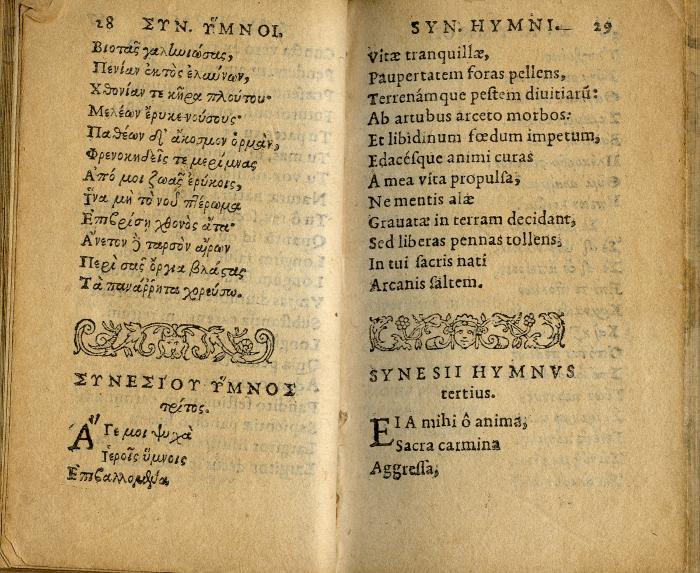 28 ΣΥΝ. ὝΜΝΟΙ.
Βιοτᾶς γαληνιώσας,
Πενίαν ἐκτὸς ἐλαύνων,
Χθονίαν τε κῆρα πλούτου·
Μελέων ἔρυκε νούσους·
Παθέων δ' ἄκοσμον ὁρμὰν,
Φρενοκηδεῖς τε μερίμνας
Ἀπό μοι ζωᾶς ἐρύκοις,
Ἵνα μὴ τὸ νοῦ πτέρωμα
Ἐπιβρίσῃ χθονὸς ἄτα·
Ἄνετον ἢ ταρσὸν αἴρων
Περὶ σᾶς ὄργια βλάστας
Τὰ παναῤῥητα χορεύσω.
ΣΥΝΕΣΙΟΥ ὝΜΝΟΣ
τρίτος.
Ἄ Γε μοι ψυχὰ
Ἱεροῖς ὕμνοις
Ἐπιβαλλομένα
SYN. HYMNI. 29
Vitæ tranquillæ,
Paupertatem foras pellens,
Terrenámque pestem diuitiarū:
Ab artubus arceto morbos:
Et libidinum fœdum impetum,
Edacésque animi curas
A mea vita propulsa,
Ne mentis alæ
Grauatæ in terram decidant,
Sed liberas pennas tollens,
In tui sacris nati
Arcanis saltem.
SYNESII HYMNVS
tertius.
EIA mihi ô anima,
Sacra carmina
Aggressa,